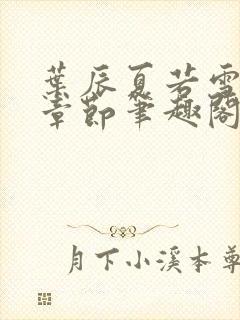 葉辰夏若雪
章節筆趣閣
月下小溪本尊